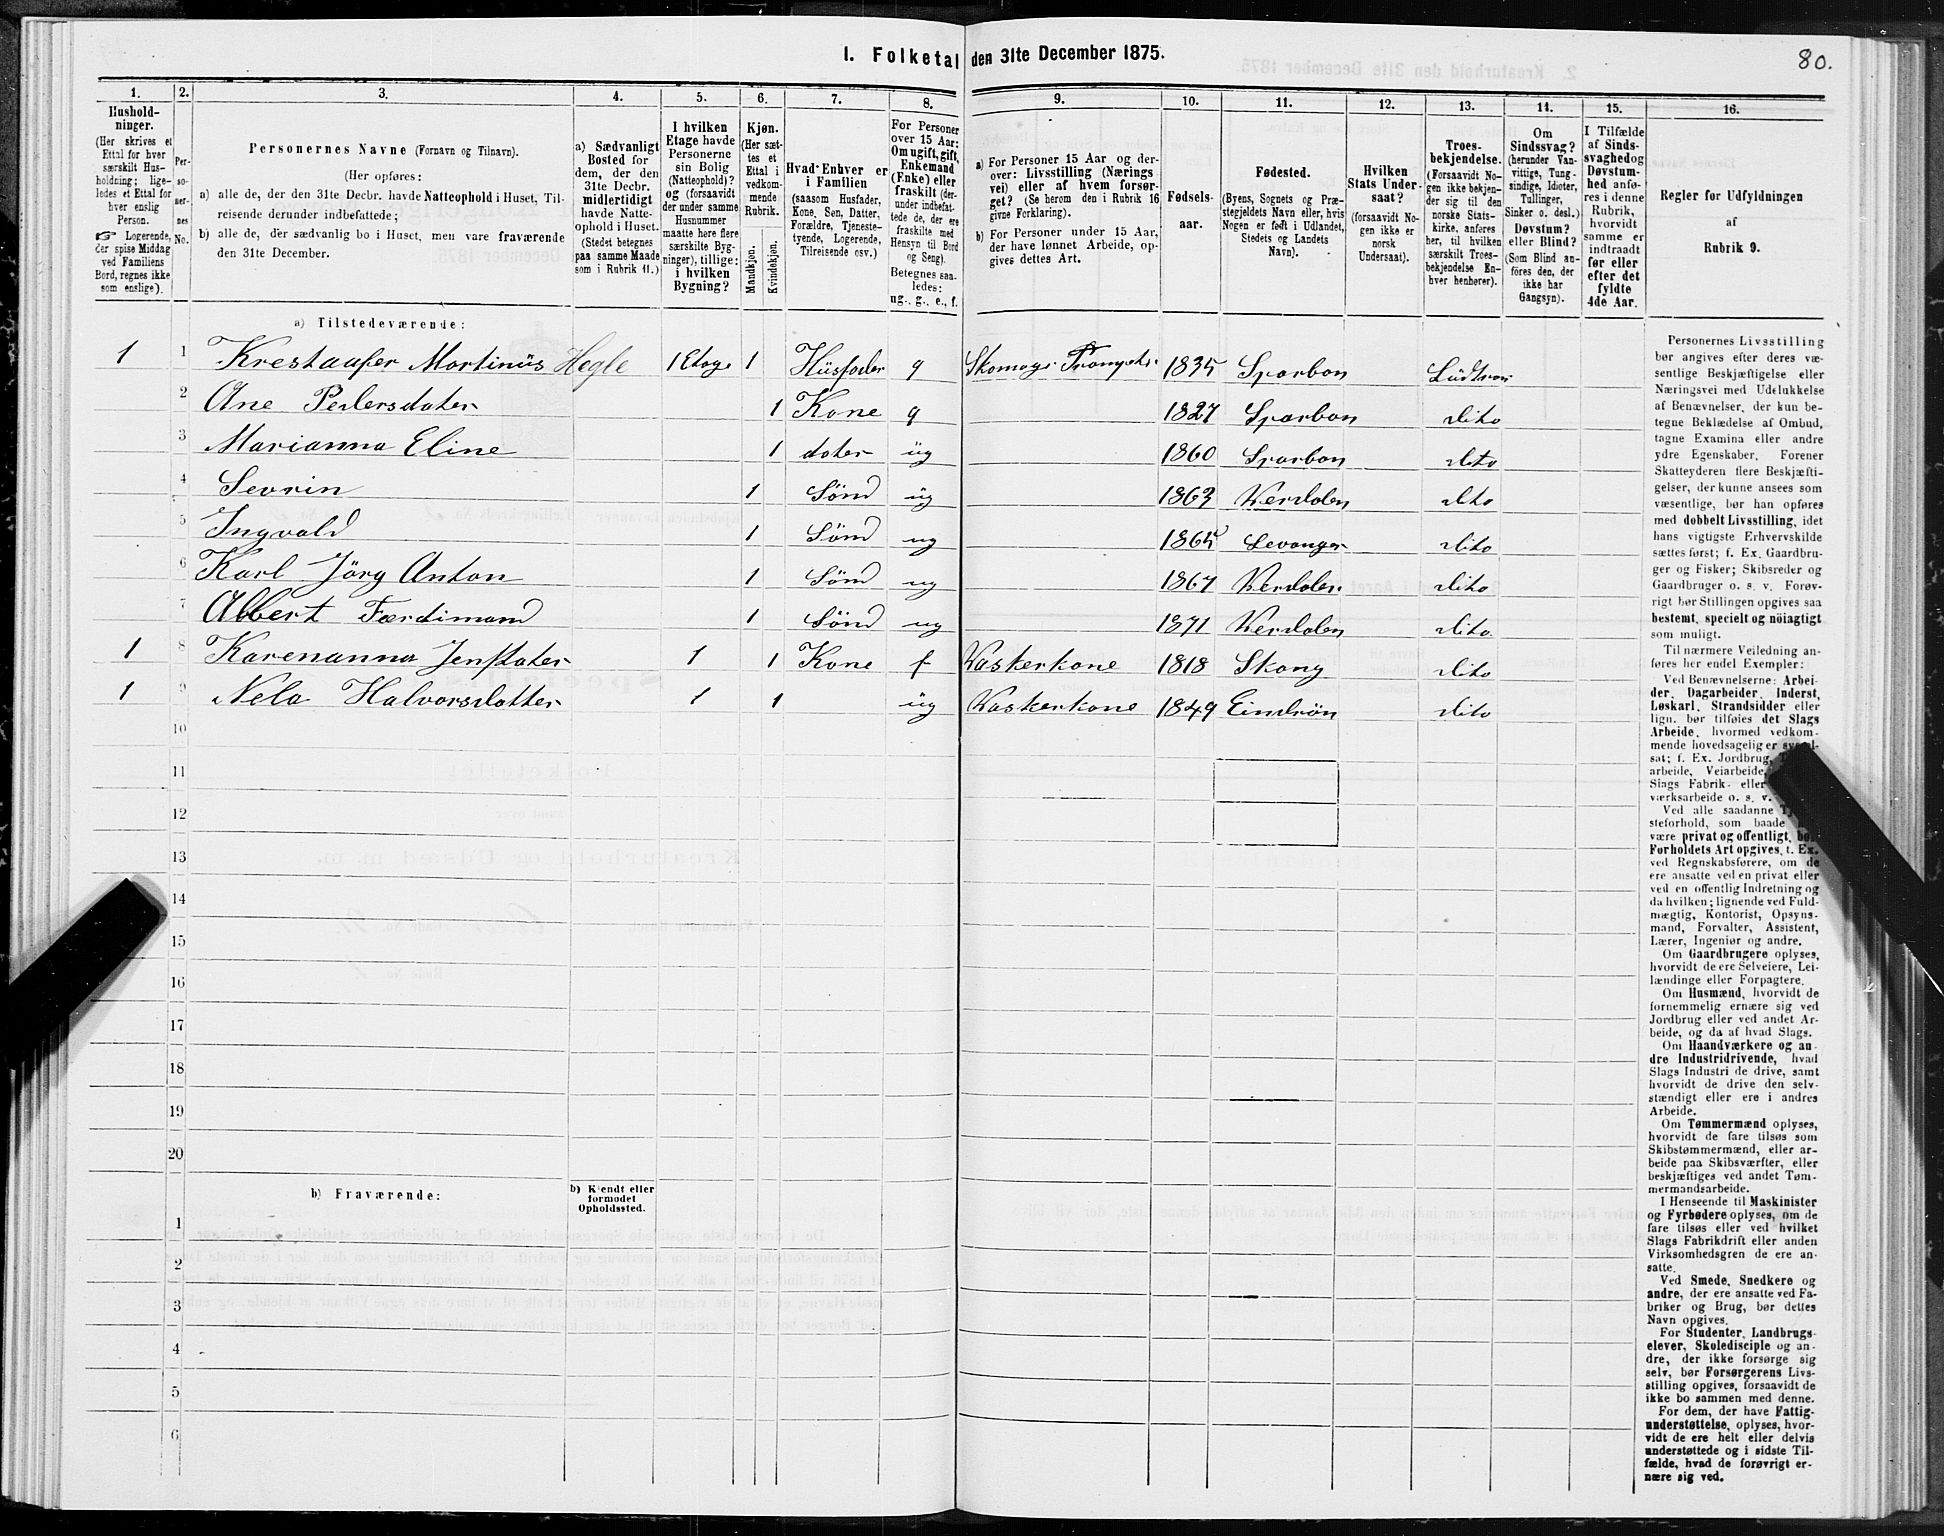 80.
I. Folketal den 31te December 1875.
1. 2. 3. 4. 5. 6. 7. 8. 9. 10. 11. 12. 13. 14. 15. 16.
Hushold-
ninger.
(Her skrives et
Ettal for hver
særskilt Hus-
holdning; lige-
ledes et Ettal for
hver enslig
Person.
☞ Logerende,
der spise Middag
ved Familiens
Bord, regnes ikke
som enslige).
Per-
so-
ner-
nes
No.
Personernes Navne (Fornavn og Tilnavn).
(Her opføres:
a) alle de, der den 31te Decbr. havde Natteophold i Huset, Til-
reisende derunder indbefattede;
b) alle de, der sædvanlig bo i Huset, men vare fraværende
den 31te December.
a) Sædvanligt
Bosted for
dem, der den
31te Decbr.
midlertidigt
havde Natte-
ophold i Huset.
(Stedet betegnes
paa samme Maade
som i Rubrik 11.)
I hvilken
Etage havde
Personerne
sin Bolig
(Natteophold)?
og (forsaavidt
der under samme
Husnummer
maatte høre flere
særskilte Byg-
ninger), tillige:
i hvilken
Bygning?
Kjøn.
(Her sæt-
tes et
Ettal i
vedkom-
mende
Rubrik.
Mandkjøn.
Kvindekjøn.
Hvad Enhver er
i Familien
(saasom Husfader,
Kone, Søn, Datter,
Forældre, Tjeneste-
tyende, Logerende,
Tilreisende osv.)
For Personer
over 15 Aar:
Om ugift, gift,
Enkemand
(Enke) eller
fraskilt (der-
under indbefat-
tede de, der ere
fraskilte med
Hensyn til Bord
og Seng).
Betegnes saa-
ledes:
ug., g., e., f.
a) For Personer 15 Aar og der-
over: Livsstilling (Nærings-
vei) eller af hvem forsør-
get? (Se herom den i Rubrik 16
givne Forklaring).
b) For Personer under 15 Aar,
der have lønnet Arbeide, op-
gives dettes Art.
Fødsels-
aar.
Fødested.
(Byens, Sognets og Præ-
stegjeldets Navn eller, hvis
Nogen er født i Udlandet,
Stedets og Landets
Navn).
Hvilken
Stats Under-
saat?
(forsaavidt No-
gen ikke er
norsk
Undersaat).
Troes-
bekjendelse.
(Forsaavidt No-
gen ikke bekjen-
der sig til den
norske Stats-
kirke, anføres
her, til hvilken
særskilt Troes-
bekjendelse En-
hver henhører).
Om
Sindssvag?
(herunder Van-
vittige, Tung-
sindige, Idioter,
Tullinger,
Sinker o. desl.)
Døvstum?
eller Blind?
(Som Blind an-
føres den, der
ikke har
Gangsyn).
I Tilfælde
af Sinds-
svaghed og
Døvstum-
hed anfø-
res i denne
Rubrik,
hvorvidt
samme er
indtraadt
før eller
efter det
fyldte
4de Aar.
Regler for Udfyldningen
af
Rubrik 9.
a) Tilstedeværende:
1 1 Krestaafer Martinüs Hegle 1 Etage 1 Hüsfader g Skomager 1835 Sparbon Lüdtran
2 Ane Pedersdater 1 Kone g 1827 Sparbon dito
3 Marianna Eline 1 dater üg 1860 Sparbon dito
4 Sevrin 1 Sønd üg 1863 Verdalen dito
5 Ingvald 1 Sønd ug 1865 Levanger dito
6 Karl Jörg Anton 1 Sønd ug 1867 Verdalen dito
7 Albert Færdimand 1 Sønd ug 1871 Verdalen dito
1 8 Karenanna Jensdater 1 1 Kone f Vaskerkone 1818 Skong dito
1 9 Nela Halvorsdatter 1 1 üg Vaskerkone 1849 Eindrön dito
10
11
12
13
14
15
16
17
18
19
20
b) Fraværende:
b) Kjendt eller
formodet
Opholdssted.
1
2
3
4
5
6
Personernes Livsstilling
bør angives efter deres væ-
sentlige Beskjæftigelse eller
Næringsvei med Udelukkelse
af Benævnelser, der kun be-
tegne Beklædelse af Ombud,
tagne Examina eller andre
ydre Egenskaber. Forener
Skatteyderen flere Beskjæfti-
gelser, der kunne ansees som
væsentlige, bør han opføres
med dobbelt Livsstilling, idet
hans vigtigste Erhvervskilde
sættes først; f. Ex. Gaardbru-
ger og Fisker; Skibsreder og
Gaardbruger o. s. v. Forøv-
rigt bør Stillingen opgives saa
bestemt, specielt og nöiagtigt
som muligt.
Til nærmere Veiledning an-
føres her endel Exempler:
Ved Benævnelserne: Arbei-
der, Dagarbeider, Inderst,
Løskarl, Strandsidder eller
lign. bør tilføies det Slags
Arbeide, hvormed vedkom-
mende hovedsagelig er sysel-
sat; f. Ex. Jordbrug,
arbeide, Veiarbeide,
Slags Fabrik- eller
værksarbeide o. s. v.
Ved alle saadanne
steforhold, som baade
være privat og offentligt, bør
Forholdets Art opgives, t. Ex.
ved Regnskabsførere, om de
ere ansatte ved en privat eller
ved en offentlig Indretning og
da hvilken; lignende ved Fuld-
mægtig, Kontorist, Opsyns-
mand, Forvalter, Assistent,
Lærer, Ingeniør og andre.
Om Gaardbrugere oplyses,
hvorvidt de ere Selveiere, Lei-
lændinge eller Forpagtere.
Om Husmænd, hvorvidt de
fornemmelig ernære sig ved
Jordbrug eller ved andet Ar-
beide, og da af hvad Slags.
Om Haandværkere og an-
dre Industridrivende, hvad
Slags Industri de drive, samt
hvorvidt de drive den selv-
stændigt eller ere i andres
Arbeide.
Om Tømmermænd oplyses,
hvorvidt de fare tilsøs som
Skibstømmermænd, eller ar-
beide paa Skibsværfter, eller
beskjæftiges ved andet Tøm-
mermandsarbeide.
I Henseende til Maskinister
og Fyrbødere oplyses, om de
fare tilsøs eller ved hvilket
Slags Fabrikdrift eller anden
Virksomhedsgren de ere an-
satte.
Ved Smede, Snedkere og
andre, der ere ansatte ved Fa-
briker og Brug, bør dettes
Navn opgives.
For Studenter, Landbrugs-
elever, Skoledisciple og an-
dre, der ikke forsørge sig
selv, bør Forsørgerens Livs-
stilling opgives, forsaavidt de
ikke bo sammen med denne.
For dem, der have Fattig-
understøttelse, oplyses, hvor-
vidt de ere helt eller delvis
understøttede og i sidste Til-
fælde, hvad de forøvrigt er-
nære sig ved.